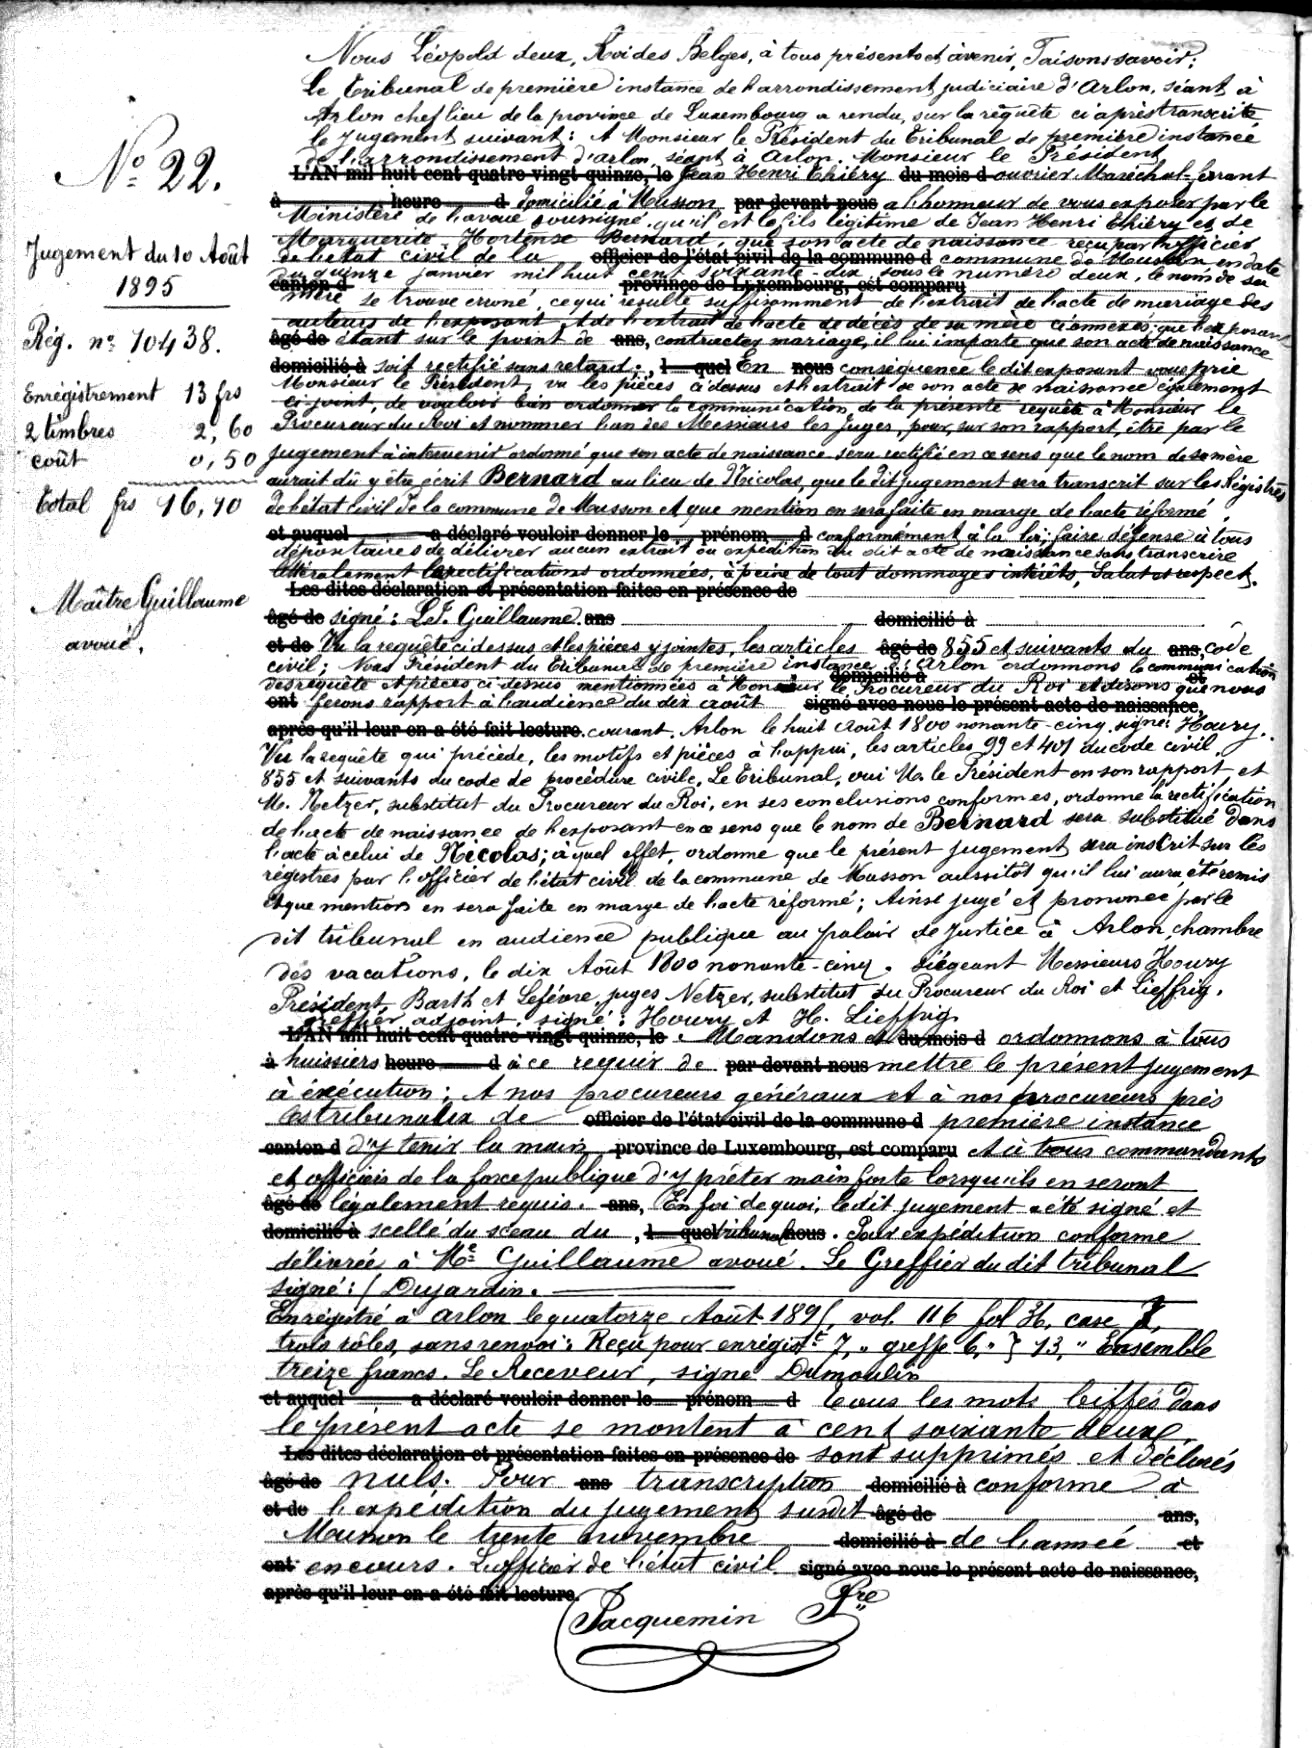 Nous Léopold deux, Roi des Belges, à tous présents et à venir, Faisons savoir:
Le Tribunal de première instance de l'arrondissement judiciaire d'Arlon, séant à
Arlon chef lieu de la province de Luxembourg a rendu, sur la requête ci après transcrite
le jugement suivant: A Monsieur le Président du Tribunal de première instance
de l'arrondissement d'arlon, séant à Arlon. Monsieur le Président
N° 22.
L'AN mil huit cent quatre-vingt quinze, le Jean Henri Thiéry du mois d ouvrier Maréchal-ferrant
à heure d domicilié à Musson par devant nous a l'honneur de vous exposer par le
Ministère de l'avoué soussigné qu'il est le fils légitime de Jean Henri Thiéry et de
Marguerite Hortense Bernard, que son acte de naissance reçu par l'officier
de l'état civil de la officier de l'état civil de la commune d commune de Musson en date
Jugement du 10 Août
1895
du quinze janvier mil huit cent soixante-dix sous le numéro deux, le nom de sa
canton d province de Luxembourg, est comparu
mère se trouve erroné, ce qui résulte suffisamment de l'extrait de l'acte de mariage des
auteurs de l'exposant et de l'extrait de l'acte de décès de sa mère ci annexés; que l'exposant
Rég. n° 10438.
âgé de étant sur le point de ans, contracter mariage, il lui importe que son acte de naissance
domicilié à soit rectifié sans retard; , l quel En nous conséquence le dit exposant vous prie
Monsieur le Président, vu les pièces ci dessus et l'extrait de son acte de naissance également
Enregistrement 13 frs
ci joint, de vouloir bien ordonner la communication, de la présente requête à Monsieur le
Procureur du Roi et nommer l'un des Messieurs les Juges, pour, sur son rapport, être par le
2 timbres 2,60
jugement à intervenir ordonné que son acte de naissance sera rectifié en ce sens que le nom de sa mère
coût 0,50
aurait dû y être écrit Bernard au lieu de Nicolas, que le dit jugement sera transcrit sur les Régistres
Total frs 16,10
de l'état civil de la commune de Musson et que mention en sera faite en marge de l'acte réformé,
et auquel a déclaré vouloir donner le prénom d conformément à la loi; faire défense à tous
dépositaires de délivrer aucun extrait ou expédition du dit acte de naissance sans transcrire
littéralement les rectifications ordonnées, à peine de tout dommages intérêts, Salut et respect.
Les dites déclaration et présentation faites en présence de
Maître Guillaume
avoué.
âgé de signé: L.J. Guillaume. ans domicilié à
et de Vu la requête ci dessus et les pièces y jointes, les articles âgé de 855 et suivants du ans, code
civil; Nous Président du Tribunal de première instance d'Arlon ordonnons la communication
domicilié à et
des requête et pièces ci dessus mentionnées à Monsieur le Procureur du Roi et disons que nous
ont ferons rapport à l'audience du dix août signé avec nous le présent acte de naissance,
après qu'il leur en a été fait lecture. courant. Arlon le huit Août 1800 nonante-cinq, signé: Houry.
Vu la requête qui précède, les motifs et pièces à l'appui, les articles 99 et 101 du code civil,
855 et suivants du code de procédure civile, Le Tribunal, ouï M. le Président en son rapport et
M. Netzer, substitut du Procureur du Roi, en ses conclusions conformes, ordonne la rectification
de l'acte de naissance de l'exposant en ce sens que le nom de Bernard sera substitué dans
l'acte à celui de Nicolas; à quel effet, ordonne que le présent jugement sera inscrit sur les
régistres par l'officier de l'état civil de la commune de Musson aussitôt qu'il lui aura été remis
et que mention en sera faite en marge de l'acte réformé; Ainsi jugé et prononcé par le
dit tribunal en audience publique au palais de Justice à Arlon, chambre
des vacations, le dix Août 1800 nonante-cinq. Siégeant Messieurs Houry
Président, Barth et Lefèvre, juges Netzer, substitut du Procureur du Roi et Lieffrig,
greffier adjoint, signé: Houry et H. Lieffrig
L'AN mil huit cent quatre-vingt quinze, le . Mandons et du mois d ordonnons à tous
à huissiers heure d à ce requis de par devant nous mettre le présent jugement
à éxécution; A nos procureurs généraux et à nos procureurs près
les tribunaux de officier de l'état civil de la commune d première instance
canton d d'y tenir la main, province de Luxembourg, est comparu et à tous commandants
et officiers de la force publique d'y prêter main forte lorsqu'ils en seront
âgé de légalement requis. ans, En foi de quoi, le dit jugement a été signé et
domicilié à scellé du sceau du , l quel tribunal nous . Pour expédition conforme
délivrée à Me Guillaume avoué. Le Greffier du dit tribunal
signé: / Dujardin.
Enregistré à Arlon le quatorze Août 1895, vol. 116 fol 31, case 7,
trois rôles, sans renvoi: Reçu pour enregist 7, " greffe 6, " } 13, " Ensemble
treize francs. Le Receveur, signé Dumoulin
et auquel a déclaré vouloir donner le prénom d Tous les mots biffés dans
le présent acte se montent à cent soixante deux,
Les dites déclaration et présentation faites en présence de sont supprimés et déclarés
âgé de nuls. Pour ans transcription domicilié à conforme à
et de l'expédition du jugement susdit âgé de ans,
Musson le trente novembre domicilié à de l'année et
ont en cours. L'officier de l'état civil signé avec nous le présent acte de naissance,
après qu'il leur en a été fait lecture.
Jacquemin Pre